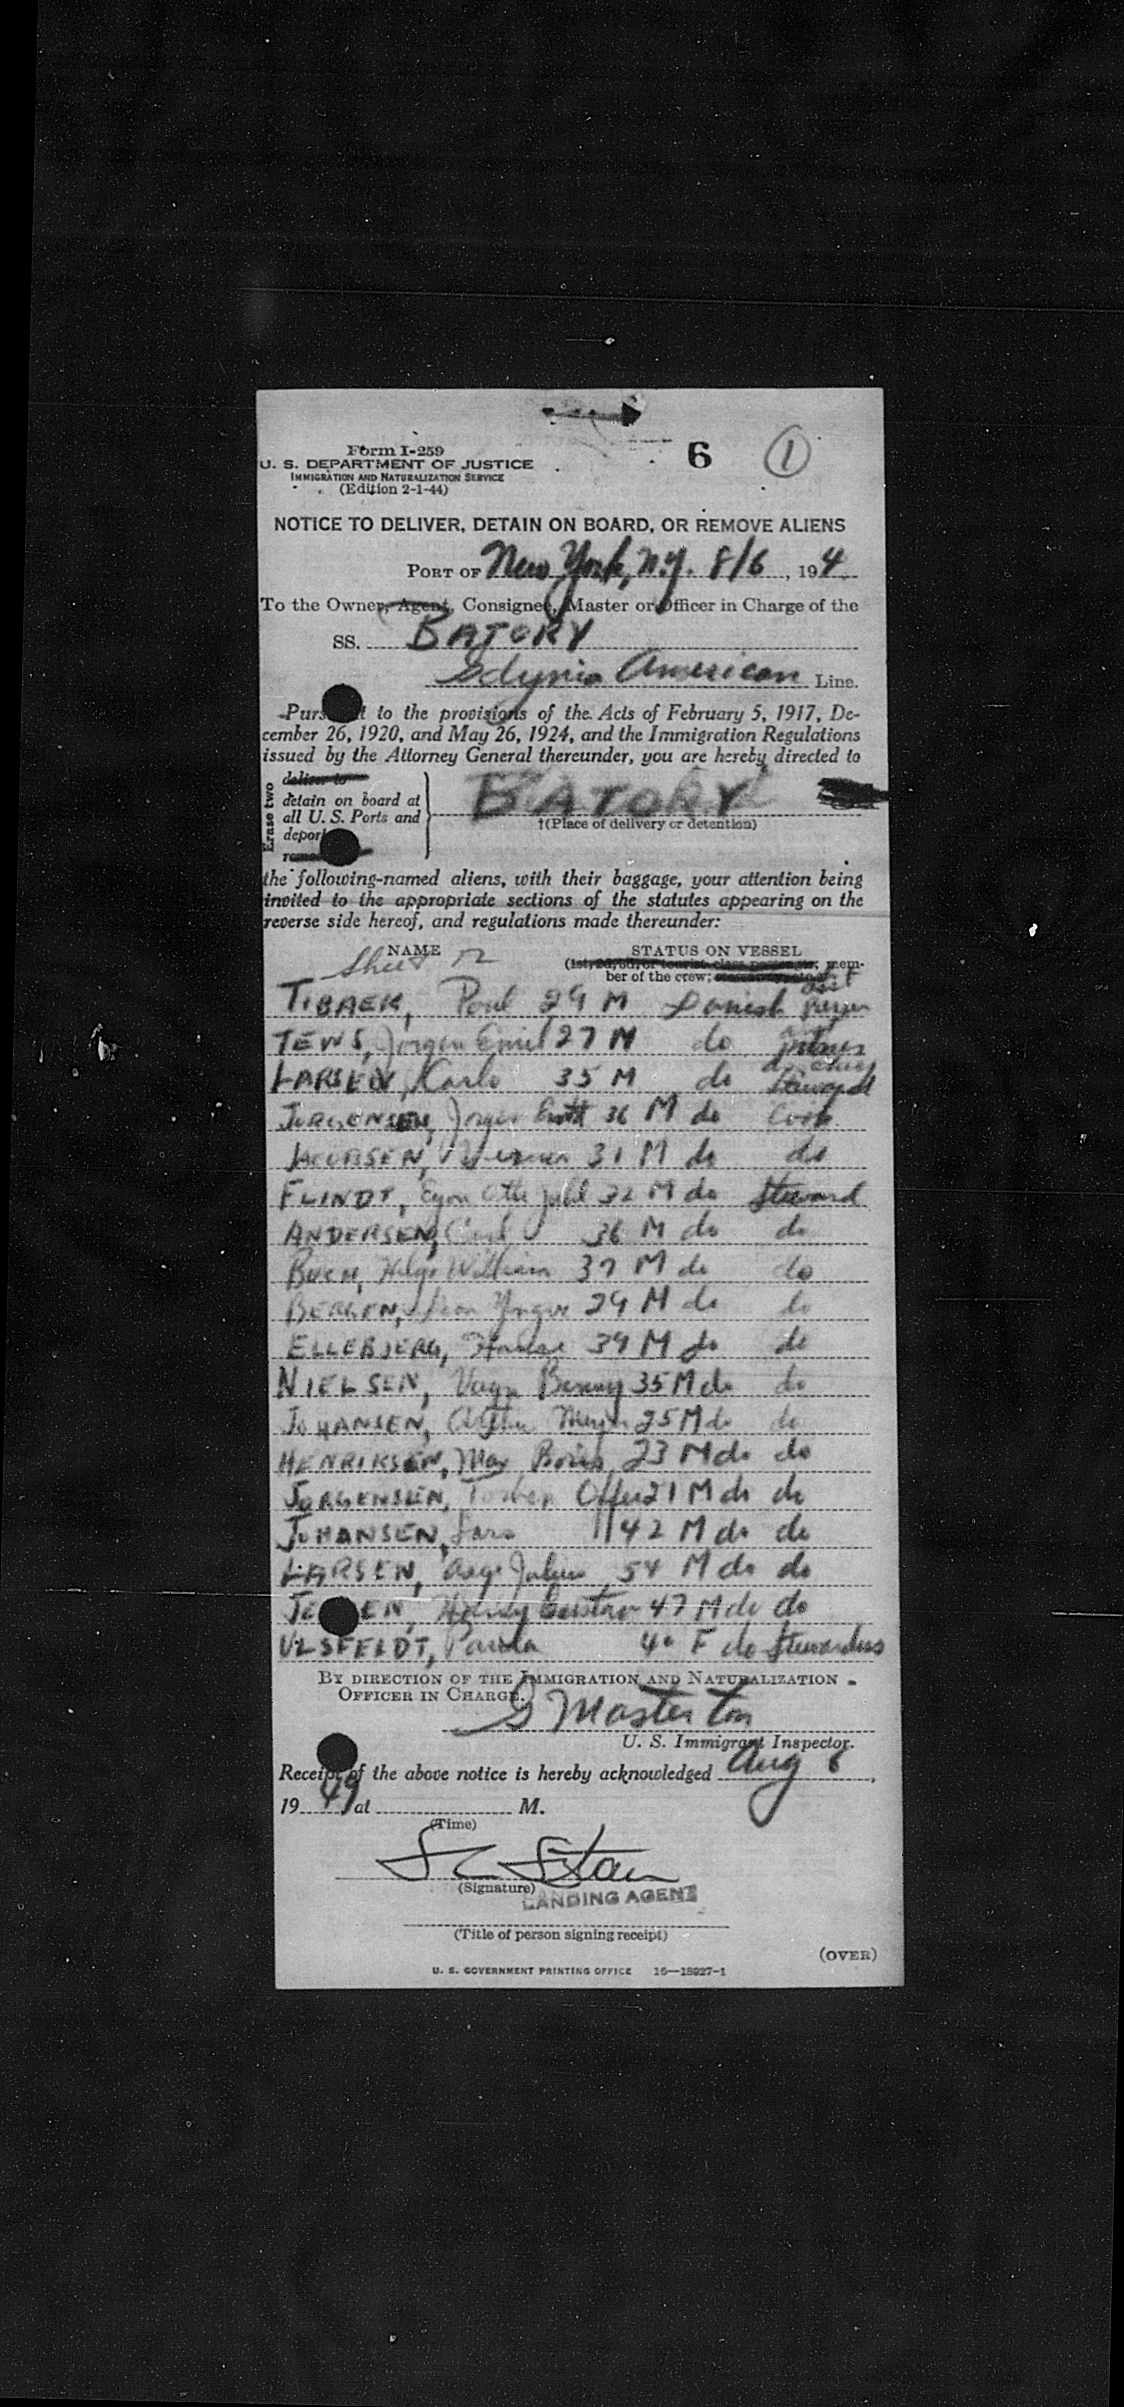 6 1
Form I-259
U. S. DEPARTMENT OF JUSTICE
IMMIGRATION AND NATURALIZATION SERVICE
(Edition 2-1-44)
NOTICE TO DELIVER, DETAIN ON BOARD, OR REMOVE ALIENS
PORT OF New York, N.Y. 8/6, 194
To the Owner, Agent, Consignee, Master or Officer in Charge of the
SS. BATORY
Gdynia American Line.
Pursuant to the provisions of the Acts of February 5, 1917, De-
cember 26, 1920, and May 26, 1924, and the Immigration Regulations
issued by the Attorney General thereunder, you are hereby directed to
Erase two
deliver to
detain on board at
all U. S. Ports and
deport
BATORY
†(Place of delivery or detention)
the following-named aliens, with their baggage, your attention being
invited to the appropriate sections of the statutes appearing on the
reverse side hereof, and regulations made thereunder:
NAME STATUS ON VESSEL
Sheet (1st, 2d, 3d, or tourist-class passenger, mem-
ber of the crew,
TIBAEK, Poul 29 M Danish
TEWS, Jorgen Emil 27 M do
LARSEN, Karlo 35 M do Steward
JORGENSEN, 36 M do Cook
JACOBSEN, 31 M do do
FLINDT, Egon 32 M do Steward
ANDERSEN, 36 M do do
BUCH, Helge William 37 M do do
BERGEN, 29 M do do
ELLEBJERG, 39 M do do
NIELSEN, Vagn Benny 35 M do do
JOHANSEN, 25 M do do
HENRIKSEN, Max 23 M do do
JORGENSEN, Torben 21 M do do
JOHANSEN, 42 M do do
LARSEN, Julius 54 M do do
47 M do do
ULSFELDT, Paula 40 F do Stewardess
BY DIRECTION OF THE IMMIGRATION AND NATURALIZATION
OFFICER IN CHARGE.
G Masterton
U. S. Immigrant Inspector.
Receipt of the above notice is hereby acknowledged Aug 6,
1949 at M.
(Time)
(Signature)
LANDING AGENT
(Title of person signing receipt)
(OVER)
U. S. GOVERNMENT PRINTING OFFICE 16—18927-1